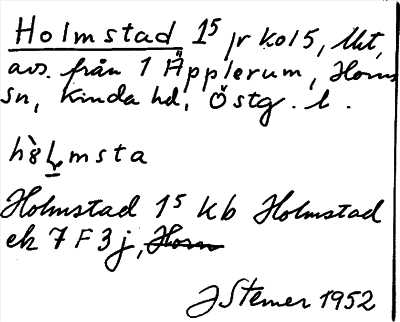 Holmstad 1⁵ jr kol 5, lht,
avs. från 1 Äpplerum, Horns
sn, Kinda hd, Östg. l.
Holmstad 1⁵ Kb Holmstad
ek 7 F 3 j, Horn
J Stemer 1952